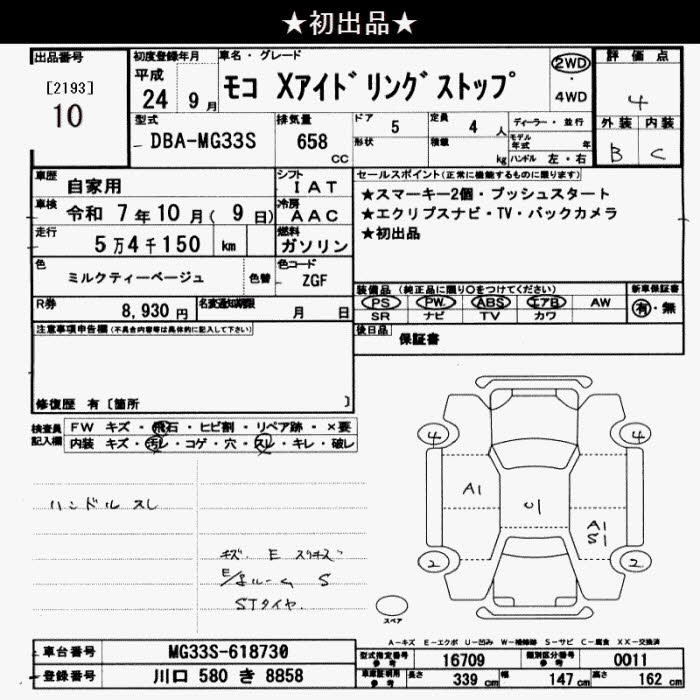 ★初出品★
出品番号
[2193]
10
初度登録年月
平成
24 9月
車名・グレード
モコ Xアイドリングストップ
2WD
・
4WD
評価点
4
外装 内装
B C
型式
DBA-MG33S
排気量
658
CC
ドア
5
形状
定員
4 人
積載
kg
ディーラー・並行
モデル年式 年
ハンドル 左・右
車歴
自家用
シフト
IAT
車検
令和 7年10月( 9日)
冷房
AAC
走行
5万4千150 km
燃料
ガソリン
色
ミルクティーベージュ
色替
色コード
ZGF
R券
8,930円
名変通知期限
月 日
セールスポイント(正常に機能するものに限ります)
★スマーキー2個・プッシュスタート
★エクリプスナビ・TV・バックカメラ
★初出品
装備品 (純正品に限り○をつけてください)
新車保証書
PS PW ABS エアB AW
SR ナビ TV カワ
有・無
後日品
保証書
注意事項申告欄(不具合内容等は具体的に記入して下さい)
修復歴 有〔箇所 〕
検査員記入欄
FW キズ・飛石・ヒビ割・リペア跡・×要
内装 キズ・汚レ・コゲ・穴・スレ・キレ・破レ
ハンドル スレ
キズ E スリキズ
S
STタイヤ
4 4
A1
U1
A1
S1
2 2
スペア
A-キズ E-エクボ U-凹み W-補修跡 S-サビ C-腐食 XX-交換済
車台番号
MG33S-618730
登録番号
川口 580 き 8858
型式指定番号
参考
16709
類別区分番号
参考
0011
車庫証明用
参考
長さ 339 cm
幅 147 cm
高さ 162 cm